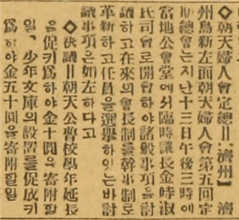 ◇朝天婦人會定總=【濟州】濟
州島新左面朝天婦人會第五回定
期總會는지난十三日午後三時에
當地公會堂에서臨時議長金時淑
氏司會로開會하야諸般事項을討
議하고在來의會長制를幹事制로
革新하고任員을選擧하엿는바討
議事項은如左하다고
◇決議=朝天公普校學年延長
을促키爲하야金五十圓을寄附할
일, 少年文庫의設置를促成키
爲하야金五十圓을寄附할일